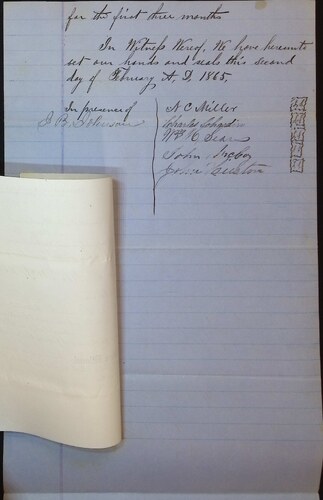 for the first three months
In Witness Wereof, We have hereunto
set our hands and seals this second
day of February A. D. 1865.
In presence of
J B
N C Miller
Charles
Wm H Dean
John
John